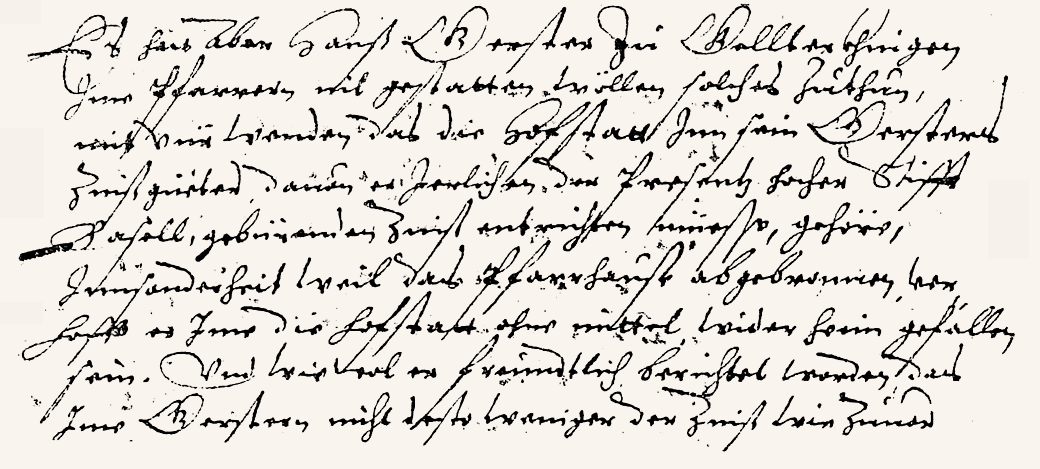 Es hat aber Hanß Gerster zu Gellterkhingen
Ime Pfarrern nit gestatten wöllen solches Zuthun,
mit Vür wenden das die Hofstatt Jnn sein Gersters
Zinßgüeter, dauon er Jerlichen der Presentz hocher Stifft
Basell, gebürenden Zinß entrichten müesse, gehöre,
Jnnsonderheit weil das Pfarrhauß abgebronnen, ver
hofft er Ime die hofstatt ohne mittel wider heim gefallen
sein. Vnd wiewol er freündtlich berichtet worden, das
Ime Gerstern nicht desto weniger der Zinß wie Zuuor